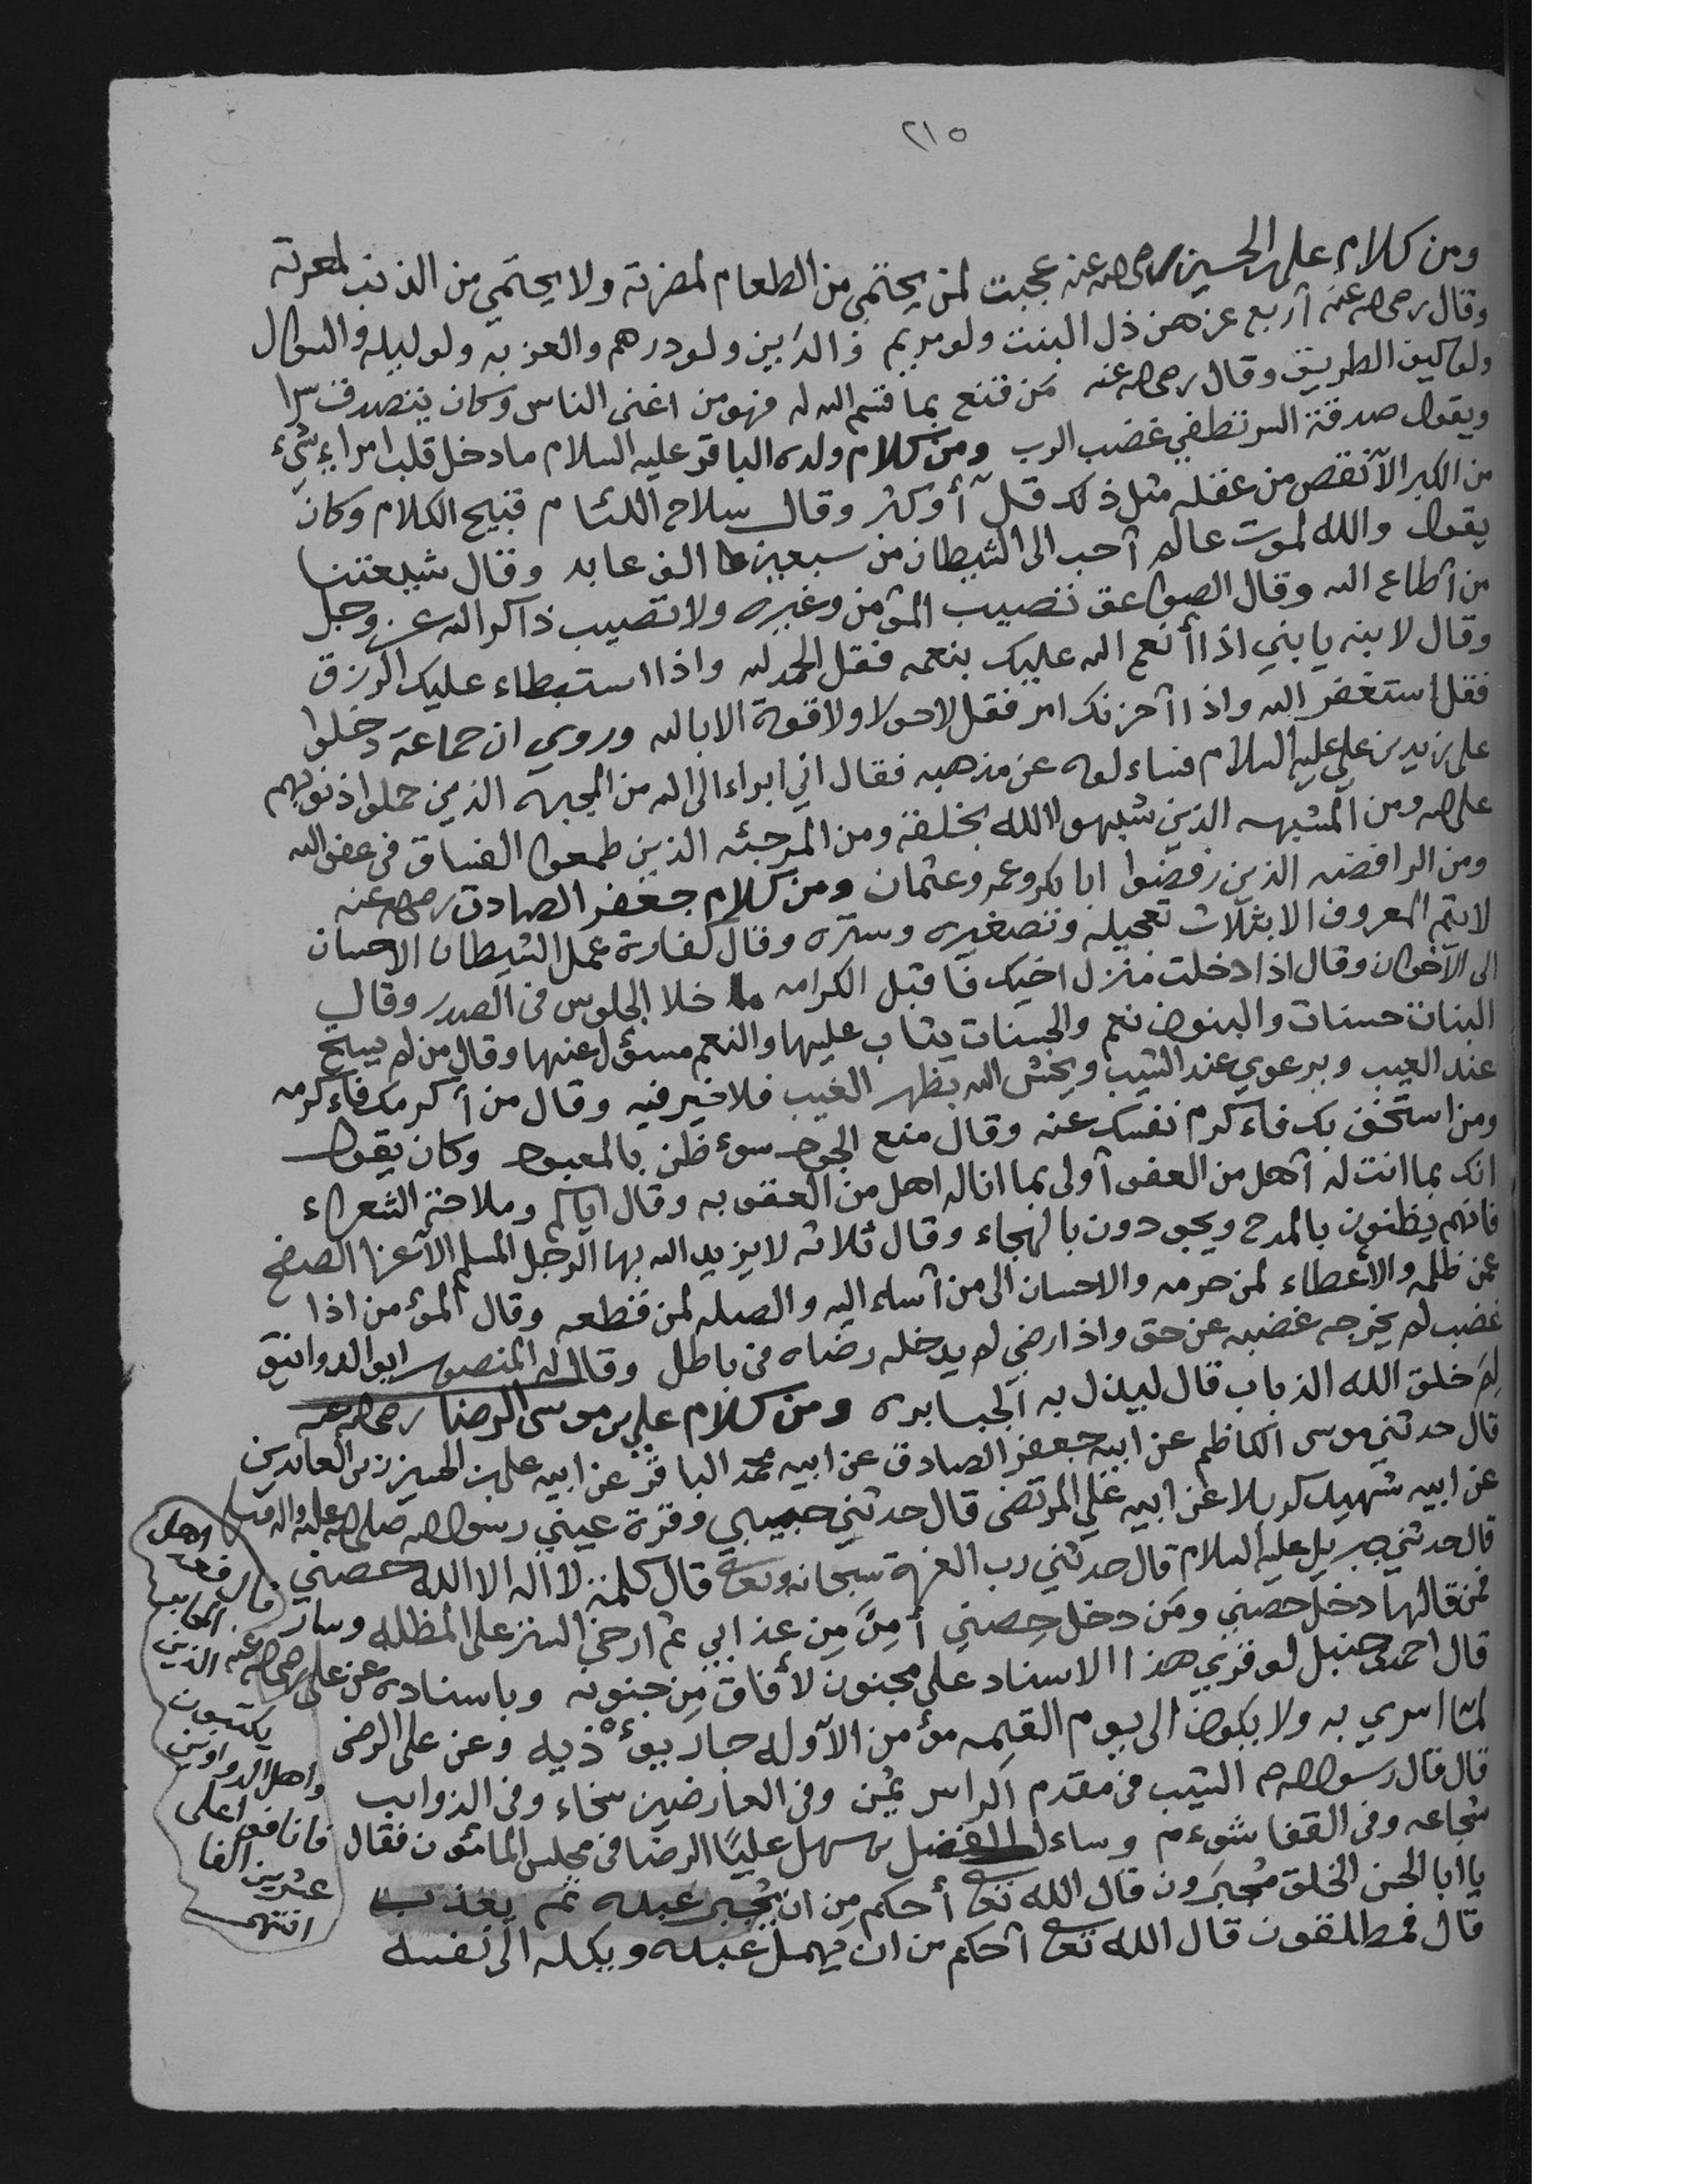 ٢١٥
ومن كلام علي بن الحسين رضي الله عنه عجبت لمن يحتمي من الطعام لمضرته ولا يحتمي من الذنب لمعرته
وقال رضي الله عنه أربع عزهن ذل البنت ولو مريم والدين ولو درهم والغربه ولو ليله والسؤال
ولو كيف الطريق وقال رضي الله عنه من قنع بما قسم الله له فهو من اغنى الناس وكان يتصدق سرا
ويقول صدقة السر تطفي غضب الرب ومن كلام ولده الباقر عليه السلام ما دخل قلب امراء شيء
من الكبر الا نقص من عقله مثل ذلك قل أو كثر وقال سلاح اللئام قبيح الكلام وكان
يقول والله لموت عالم أحب الى الشيطان من سبعين الف عابد وقال شيعتنا
من أطاع الله وقال الصواعق تصيب المؤمن وغيره ولا تصيب ذاكر الله عز وجل
وقال لابنه يا بني اذا أنعم الله عليك بنعمه فقل الحمد لله واذا استبطاء عليك الرزق
فقل استغفر الله واذا أحزنك امر فقل لا حول ولا قوة الا بالله وروي ان جماعة دخلوا
على زيد بن علي عليه السلام فساءلوه عن مذهبه فقال اني ابراء الى الله من المجبره الذين حملوا ذنوبهم
على الله ومن المشبهه الذين شبهوا الله بخلقه ومن المرجئه الذين طمعوا الفساق في عفو الله
ومن الرافضه الذين رفضوا ابا بكر وعمر وعثمان ومن كلام جعفر الصادق رضي الله عنه
لا يتم المعروف الا بثلاث تعجيله وتصغيره وستره وقال كفارة عمل الشيطان الاحسان
الى الأخوان وقال اذا دخلت منزل اخيك فاقبل الكرامه ما خلا الجلوس في الصدر وقال
البنات حسنات والبنون نعم والحسنات يثاب عليها والنعم مسؤل عنها وقال من لم يستح
عند العيب ويرعوي عند الشيب ويخش الله بظهر الغيب فلا خير فيه وقال من أكرمك فاءكرمه
ومن استخف بك فاءكرم نفسك عنه وقال منع الجود سوء ظن بالمعبود وكان يقول
انك بما انت له أهل من العفو أولى بما انا له اهل من العقوبه وقال اياكم وملاحة الشعراء
فانهم يظنون بالمدح ويجودون بالهجاء وقال ثلاثه لا يزيد الله بها الرجل المسلم الا عزا الصفح
عمن ظلمه والأعطاء لمن حرمه والاحسان الى من أساء اليه والصله لمن قطعه وقال المؤمن اذا
غضب لم يخرجه غضبه عن حق واذا رضي لم يدخله رضاه في باطل وقال له المنصور ابو الدوانيق
لم خلق الله الذباب قال ليذل به الجبابره ومن كلام علي بن موسى الرضا رضي الله عنه
قال حدثني موسى الكاظم عن ابيه جعفر الصادق عن ابيه محمد الباقر عن ابيه علي بن الحسين زين العابدين
عن ابيه شهيد كربلا عن ابيه علي المرتضى قال حدثني حبيبي وقرة عيني رسول الله صلى الله عليه واله وسلم
قال حدثني جبريل عليه السلام قال حدثني رب العزة سبحانه وتعالى قال كلمة لا اله الا الله حصني
فمن قالها دخل حصني ومن دخل حصني أمن من عذابي ثم ارخى الستر على المظله وسار
قال احمد بن حنبل لو قري هذا الاسناد على مجنون لأفاق من جنونه وباسناده عن علي رضي الله عنه
لما اسري به ولا يكون الى يوم القيمه مؤمن الا وله جار يؤذيه وعن علي الرضى
قال قال رسول الله م الشيب في مقدم الراس يمن وفي العارضين سخاء وفي الذوايب
شجاعه وفي القفا شوءم وساءل الفضل بن سهل عليًا الرضا في مجلس المأمون فقال
يا أبا الحسن الخلق مجبرون قال الله تعالى أحكم من ان يجبر عبده ثم يعذب
قال فمطلقون قال الله تعالى أحكم من ان يهمل عبده ويكله الى نفسه
اهل
المحابر
الذين
يكتبون
واهل الدواوين
فانافوا على
عشرين الفا
انتهى